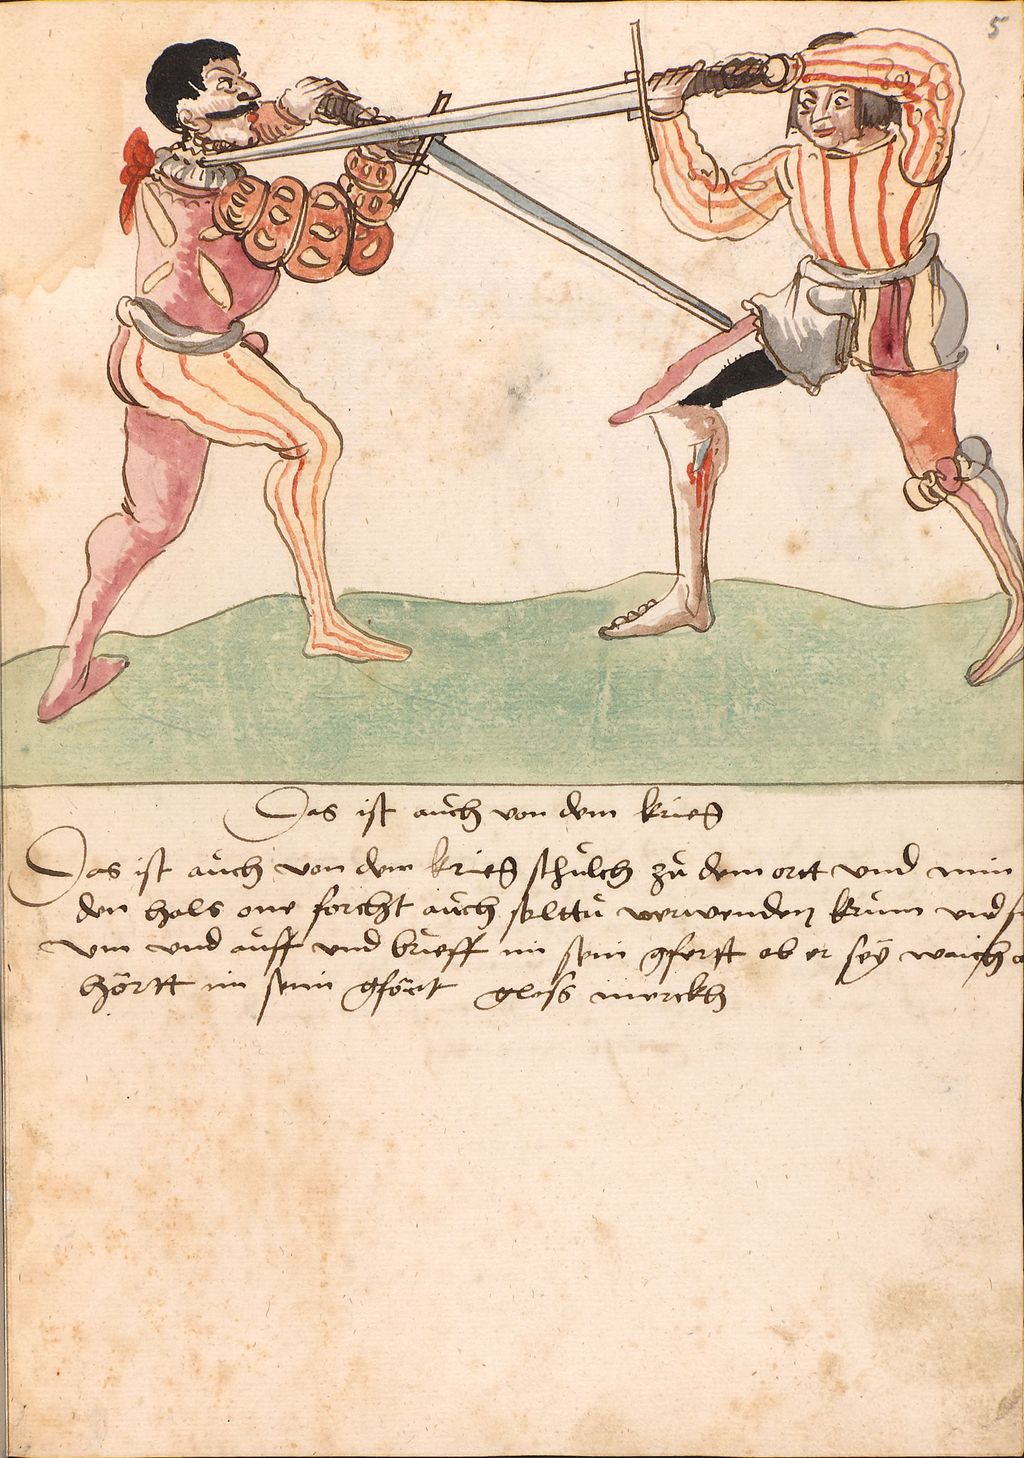 5
Das ist auch von dem krieg
Das ist auch von dem krieg schülch zü dem ortt und nim
den hals one forcht auch soltü verwenden krüm und
um und auff und brieff im sein gfertt ob er sey waich
hörtt im seim gfört gloss merckh